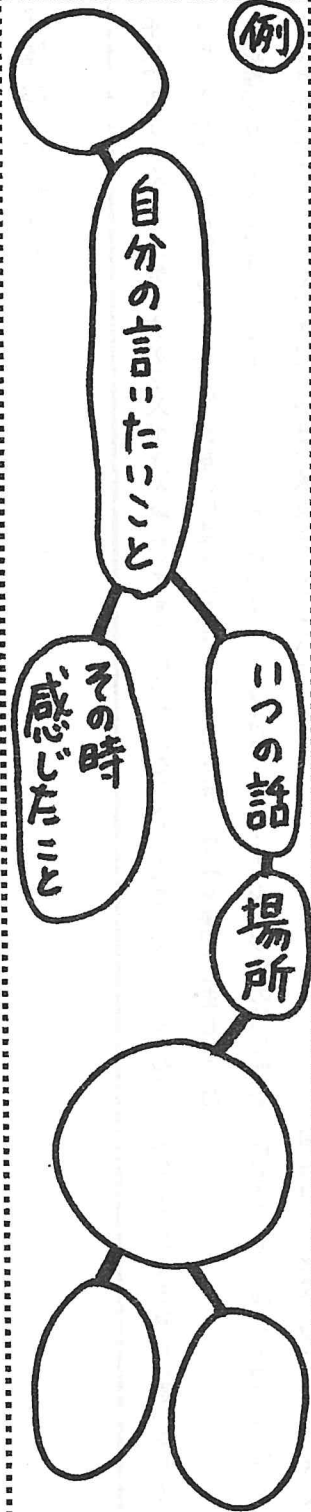 例
自分の言いたいこと
いつの話
場所
その時
感じたこと